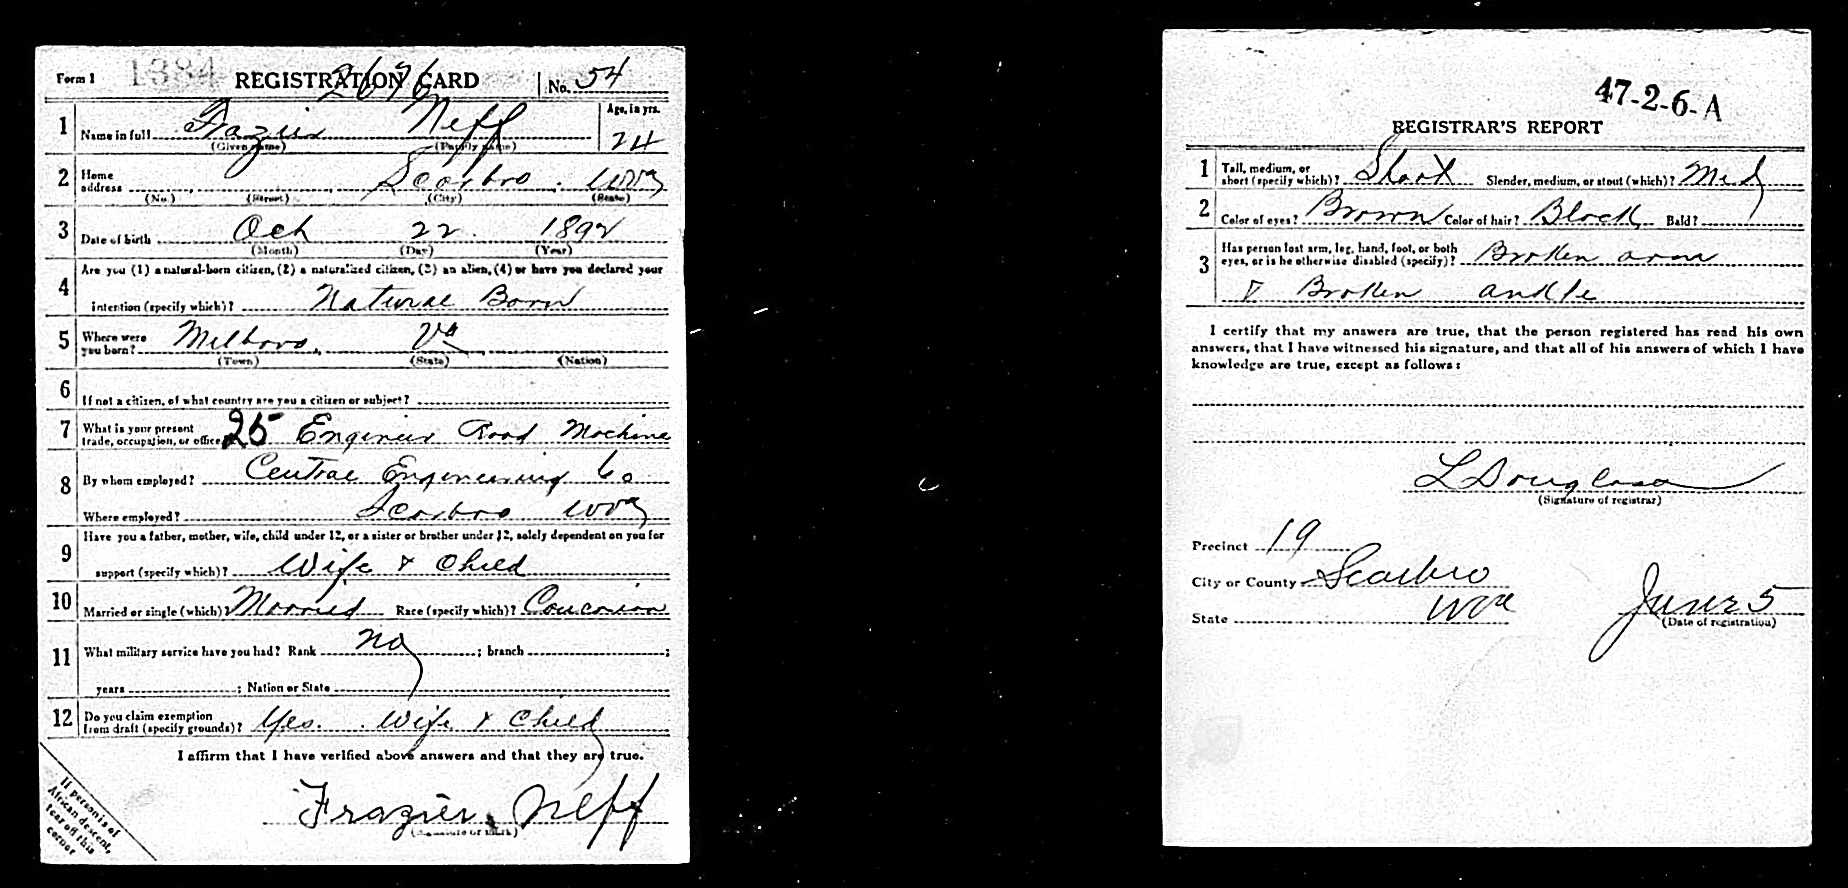 Form 1 1384 REGISTRATION CARD No. 54
2676
1 Name in full Frazier Neff Age, in yrs. 24
(Given name) (Family name)
2 Home address Scarbro, W Va
(No.) (Street) (City) (State)
3 Date of birth Oct 22 1892
(Month) (Day) (Year)
4 Are you (1) a natural-born citizen, (2) a naturalized citizen, (3) an alien, (4) or have you declared your
intention (specify which)? Natural Born
5 Where were you born? Milboro, Va
(Town) (State) (Nation)
6 If not a citizen, of what country are you a citizen or subject?
7 What is your present trade, occupation, or office? 25 Engineer Road Machine
8 By whom employed? Central Engineering Co
Where employed? Scarbro W Va
9 Have you a father, mother, wife, child under 12, or a sister or brother under 12, solely dependent on you for
support (specify which)? Wife & Child
10 Married or single (which)? Married Race (specify which)? Caucasian
11 What military service have you had? Rank No ; branch ;
years ; Nation or State
12 Do you claim exemption from draft (specify grounds)? Yes. Wife & Child
I affirm that I have verified above answers and that they are true.
Frazier Neff
(Signature or mark)
If person is of
African descent,
tear off this
corner
47-2-6-A
REGISTRAR'S REPORT
1 Tall, medium, or short (specify which)? Short Slender, medium, or stout (which)? Med
2 Color of eyes? Brown Color of hair? Black Bald?
3 Has person lost arm, leg, hand, foot, or both
eyes, or is he otherwise disabled (specify)? Broken arm
& Broken ankle
I certify that my answers are true, that the person registered has read his own
answers, that I have witnessed his signature, and that all of his answers of which I have
knowledge are true, except as follows:
L Douglass
(Signature of registrar)
Precinct 19
City or County Scarbro
State W Va June 5
(Date of registration)